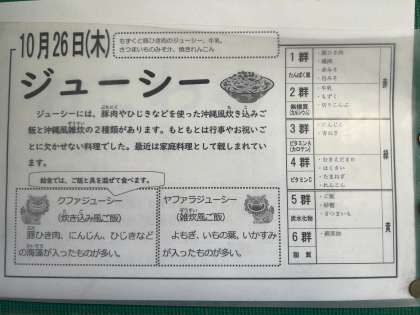 10月26日(木)
もずくと豚ひき肉のジューシー、牛乳、
さつまいものみそ汁、焼きれんこん
ジューシー
ジューシーには、豚肉やひじきなどを使った沖縄風炊き込みご
飯と沖縄風雑炊の2種類があります。もともとは行事やお祝いご
とに欠かせない料理でした。最近は家庭料理として親しまれてい
ます。
給食では、ご飯と具を混ぜて食べます。
クファジューシー
(炊き込み風ご飯)
豚ひき肉、にんじん、ひじきなど
の海藻が入ったものが多い。
ヤファラジューシー
(雑炊風ご飯)
よもぎ、いもの葉、いかすみ
が入ったものが多い。
1群
たんぱく質
・豚ひき肉
・赤みそ
・白みそ
2群
無機質
(カルシウム)
・牛乳
・もずく
3群
ビタミンA
(カロテン)
・にんじん
4群
ビタミンC
・はくさい
・たまねぎ
・れんこん
5群
炭水化物
・ご飯
・砂糖
・さつまいも
6群
脂質
赤
緑
黄